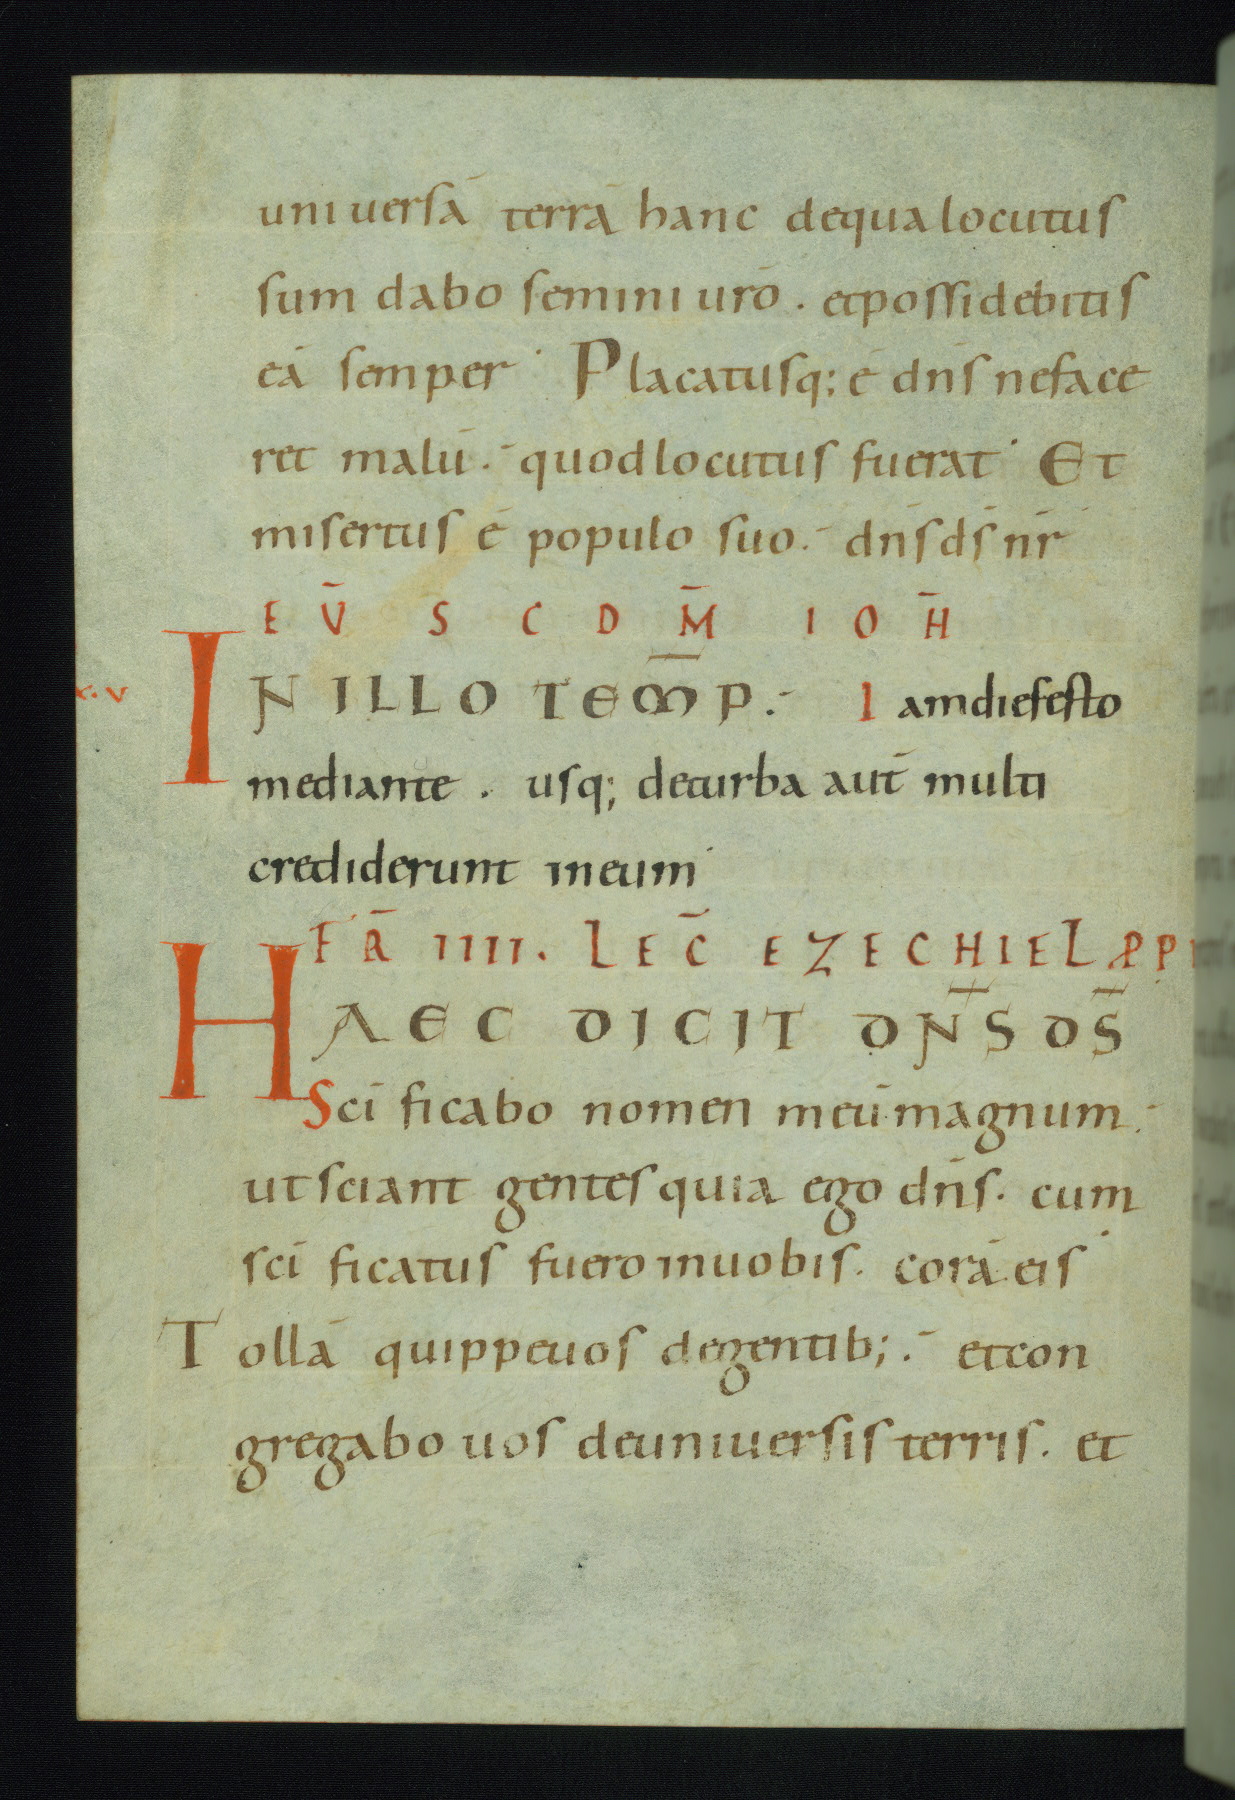 uniuersā terrā hanc dequa locutus
sum dabo semini urō . et possidebitis
eā semper · Placatusq; ē dn̄s ne face
ret malū . quod locutus fuerat · Et
misertus ē populo suo . dn̄s ds̄ nr̄
E V̄ S C D M̄ I O H̄
x·v
IN ILLO TEM̄P . Iam die festo
mediante . usq; de turba aut̄ multi
crediderunt in eum ·
FR̄ IIII . LEC̄ EZECHIEL PP
HAEC DICIT DN̄S DS̄
Scīficabo nomen meū magnum .
ut sciant gentes quia ego dn̄s . cum
scīficatus fuero in uobis . corā eis ·
Tollā quippe uos de gentib; . et con
gregabo uos de uniuersis terris . et